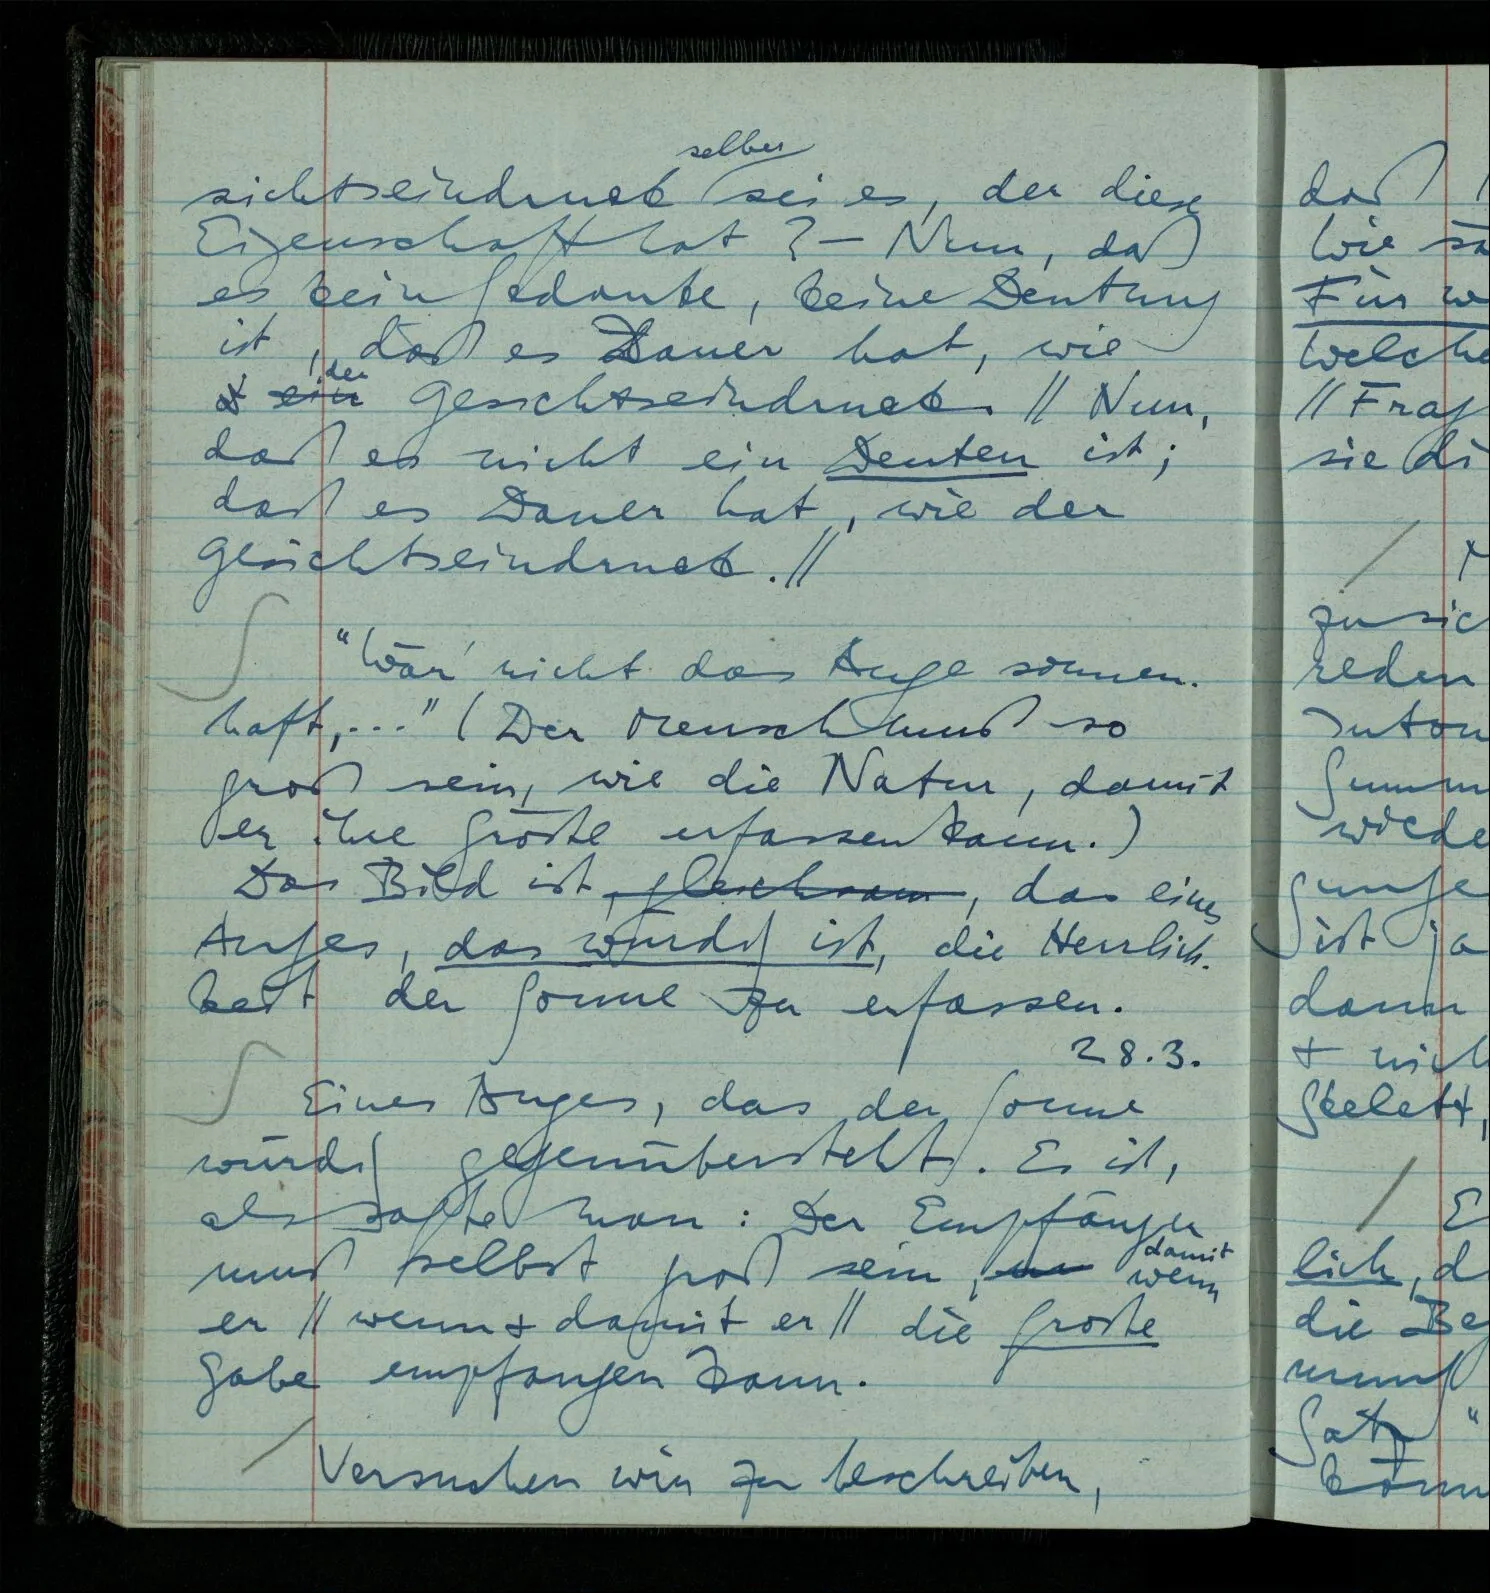 selber
sichtseindruck sei es, der diese
Eigenschaft hat? – Nun, daß
es kein Gedanke, keine Deutung
ist, daß es Dauer hat, wie
der
& ein Gesichtseindruck. // Nun,
daß es nicht ein Deuten ist;
daß es Dauer hat, wie der
Gesichtseindruck. //
"Wär' nicht das Auge sonnen-
haft,..." (Der Mensch muß so
groß sein, wie die Natur, damit
er ihre Größe erfassen kann.)
Das Bild ist, gleichsam, das eines
Auges, das würdig ist, die Herrlich-
keit der Sonne zu erfassen.
28.3.
Eines Auges, das der Sonne
würdig gegenübersteht. Es ist,
als sagte man: Der Empfänger
damit
muß selbst groß sein, wenn
er // wenn & damit er // die große
Gabe empfangen kann.
Versuchen wir zu beschreiben,
daß
Wie
Für
welche
// Frag
sie di
zu sic
reden
Inton
wiede
ist ja
dann
+ nich
Skelett,
E
lich, d
die Be
Satz "